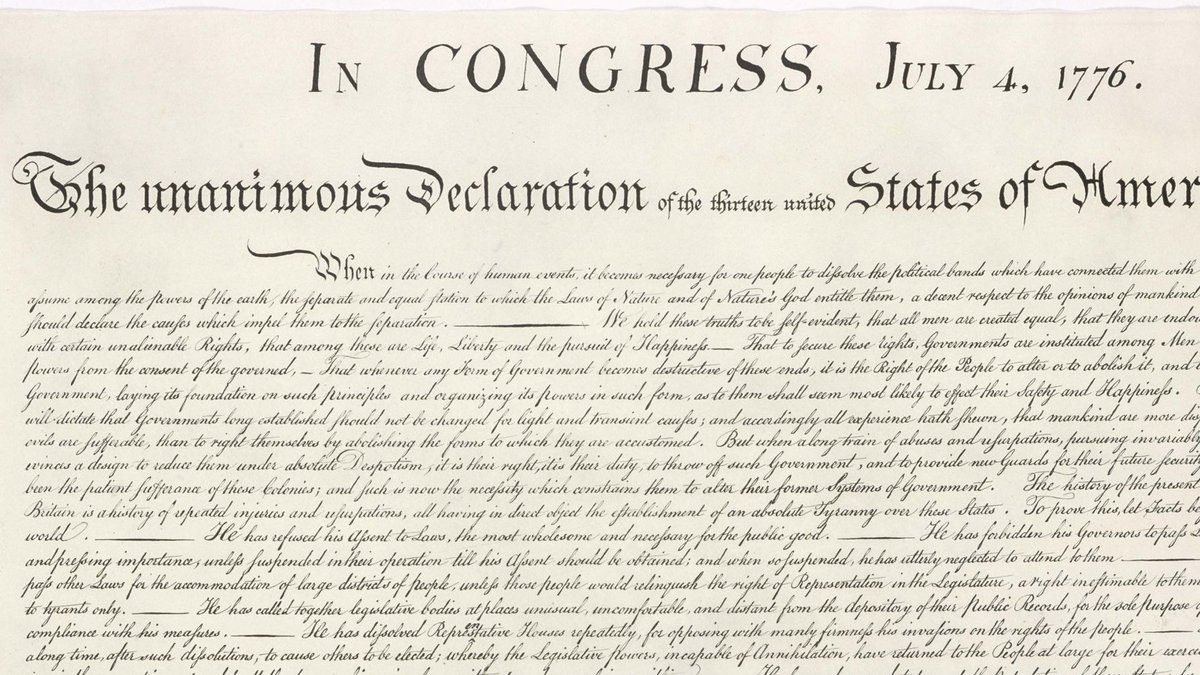 In CONGRESS, July 4, 1776.
The unanimous Declaration of the thirteen united States of Amer
When in the Course of human events, it becomes necessary for one people to dissolve the political bands which have connected them with
assume among the powers of the earth, the separate and equal station to which the Laws of Nature and of Nature's God entitle them, a decent respect to the opinions of mankind
should declare the causes which impel them to the separation. ——— We hold these truths to be self-evident, that all men are created equal, that they are endow
with certain unalienable Rights, that among these are Life, Liberty and the pursuit of Happiness — That to secure these rights, Governments are instituted among Men
powers from the consent of the governed, — That whenever any Form of Government becomes destructive of these ends, it is the Right of the People to alter or to abolish it, and
Government, laying its foundation on such principles and organizing its powers in such form, as to them shall seem most likely to effect their Safety and Happiness.
will dictate that Governments long established should not be changed for light and transient causes; and accordingly all experience hath shewn, that mankind are more dis
evils are sufferable, than to right themselves by abolishing the forms to which they are accustomed. But when a long train of abuses and usurpations, pursuing invariabl
evinces a design to reduce them under absolute Despotism, it is their right, it is their duty, to throw off such Government, and to provide new Guards for their future securit
been the patient sufferance of these Colonies; and such is now the necessity which constrains them to alter their former Systems of Government. The history of the present
Britain is a history of repeated injuries and usurpations, all having in direct object the establishment of an absolute Tyranny over these States. To prove this, let Facts be
world. ——— He has refused his Assent to Laws, the most wholesome and necessary for the public good. ——— He has forbidden his Governors to pass L
and pressing importance, unless suspended in their operation till his Assent should be obtained; and when so suspended, he has utterly neglected to attend to them ———
pass other Laws for the accommodation of large districts of people, unless those people would relinquish the right of Representation in the Legislature, a right inestimable to them
to tyrants only. ——— He has called together legislative bodies at places unusual, uncomfortable, and distant from the depository of their Public Records, for the sole purpose
compliance with his measures. ——— He has dissolved Representative Houses repeatedly, for opposing with manly firmness his invasions on the rights of the people. ———
along time, after such dissolutions, to cause others to be elected; whereby the Legislative powers, incapable of Annihilation, have returned to the People at large for their exerci